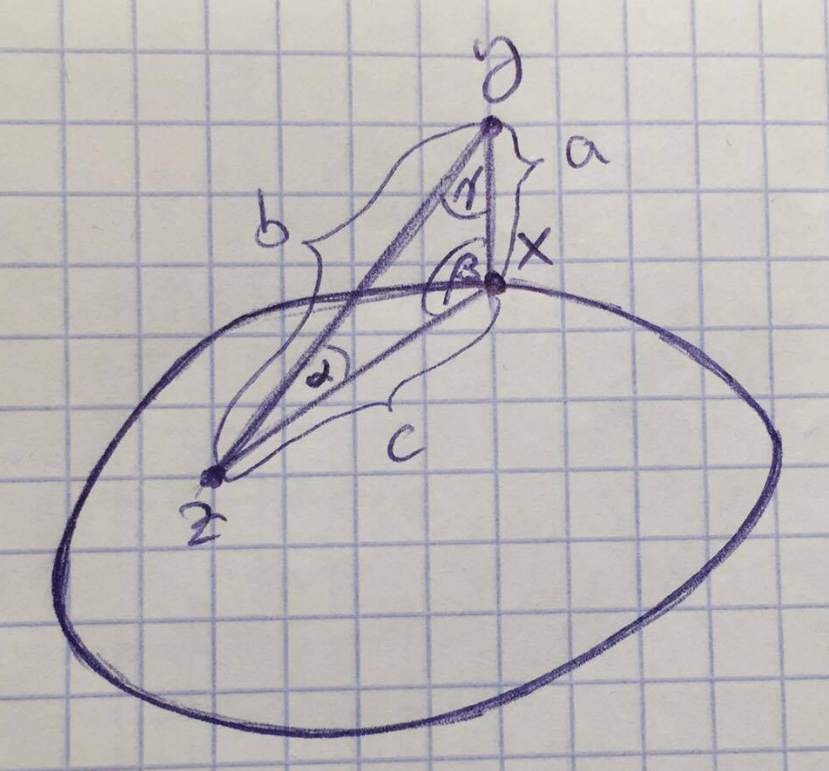 y
a
b
γ
x
β
α
c
z